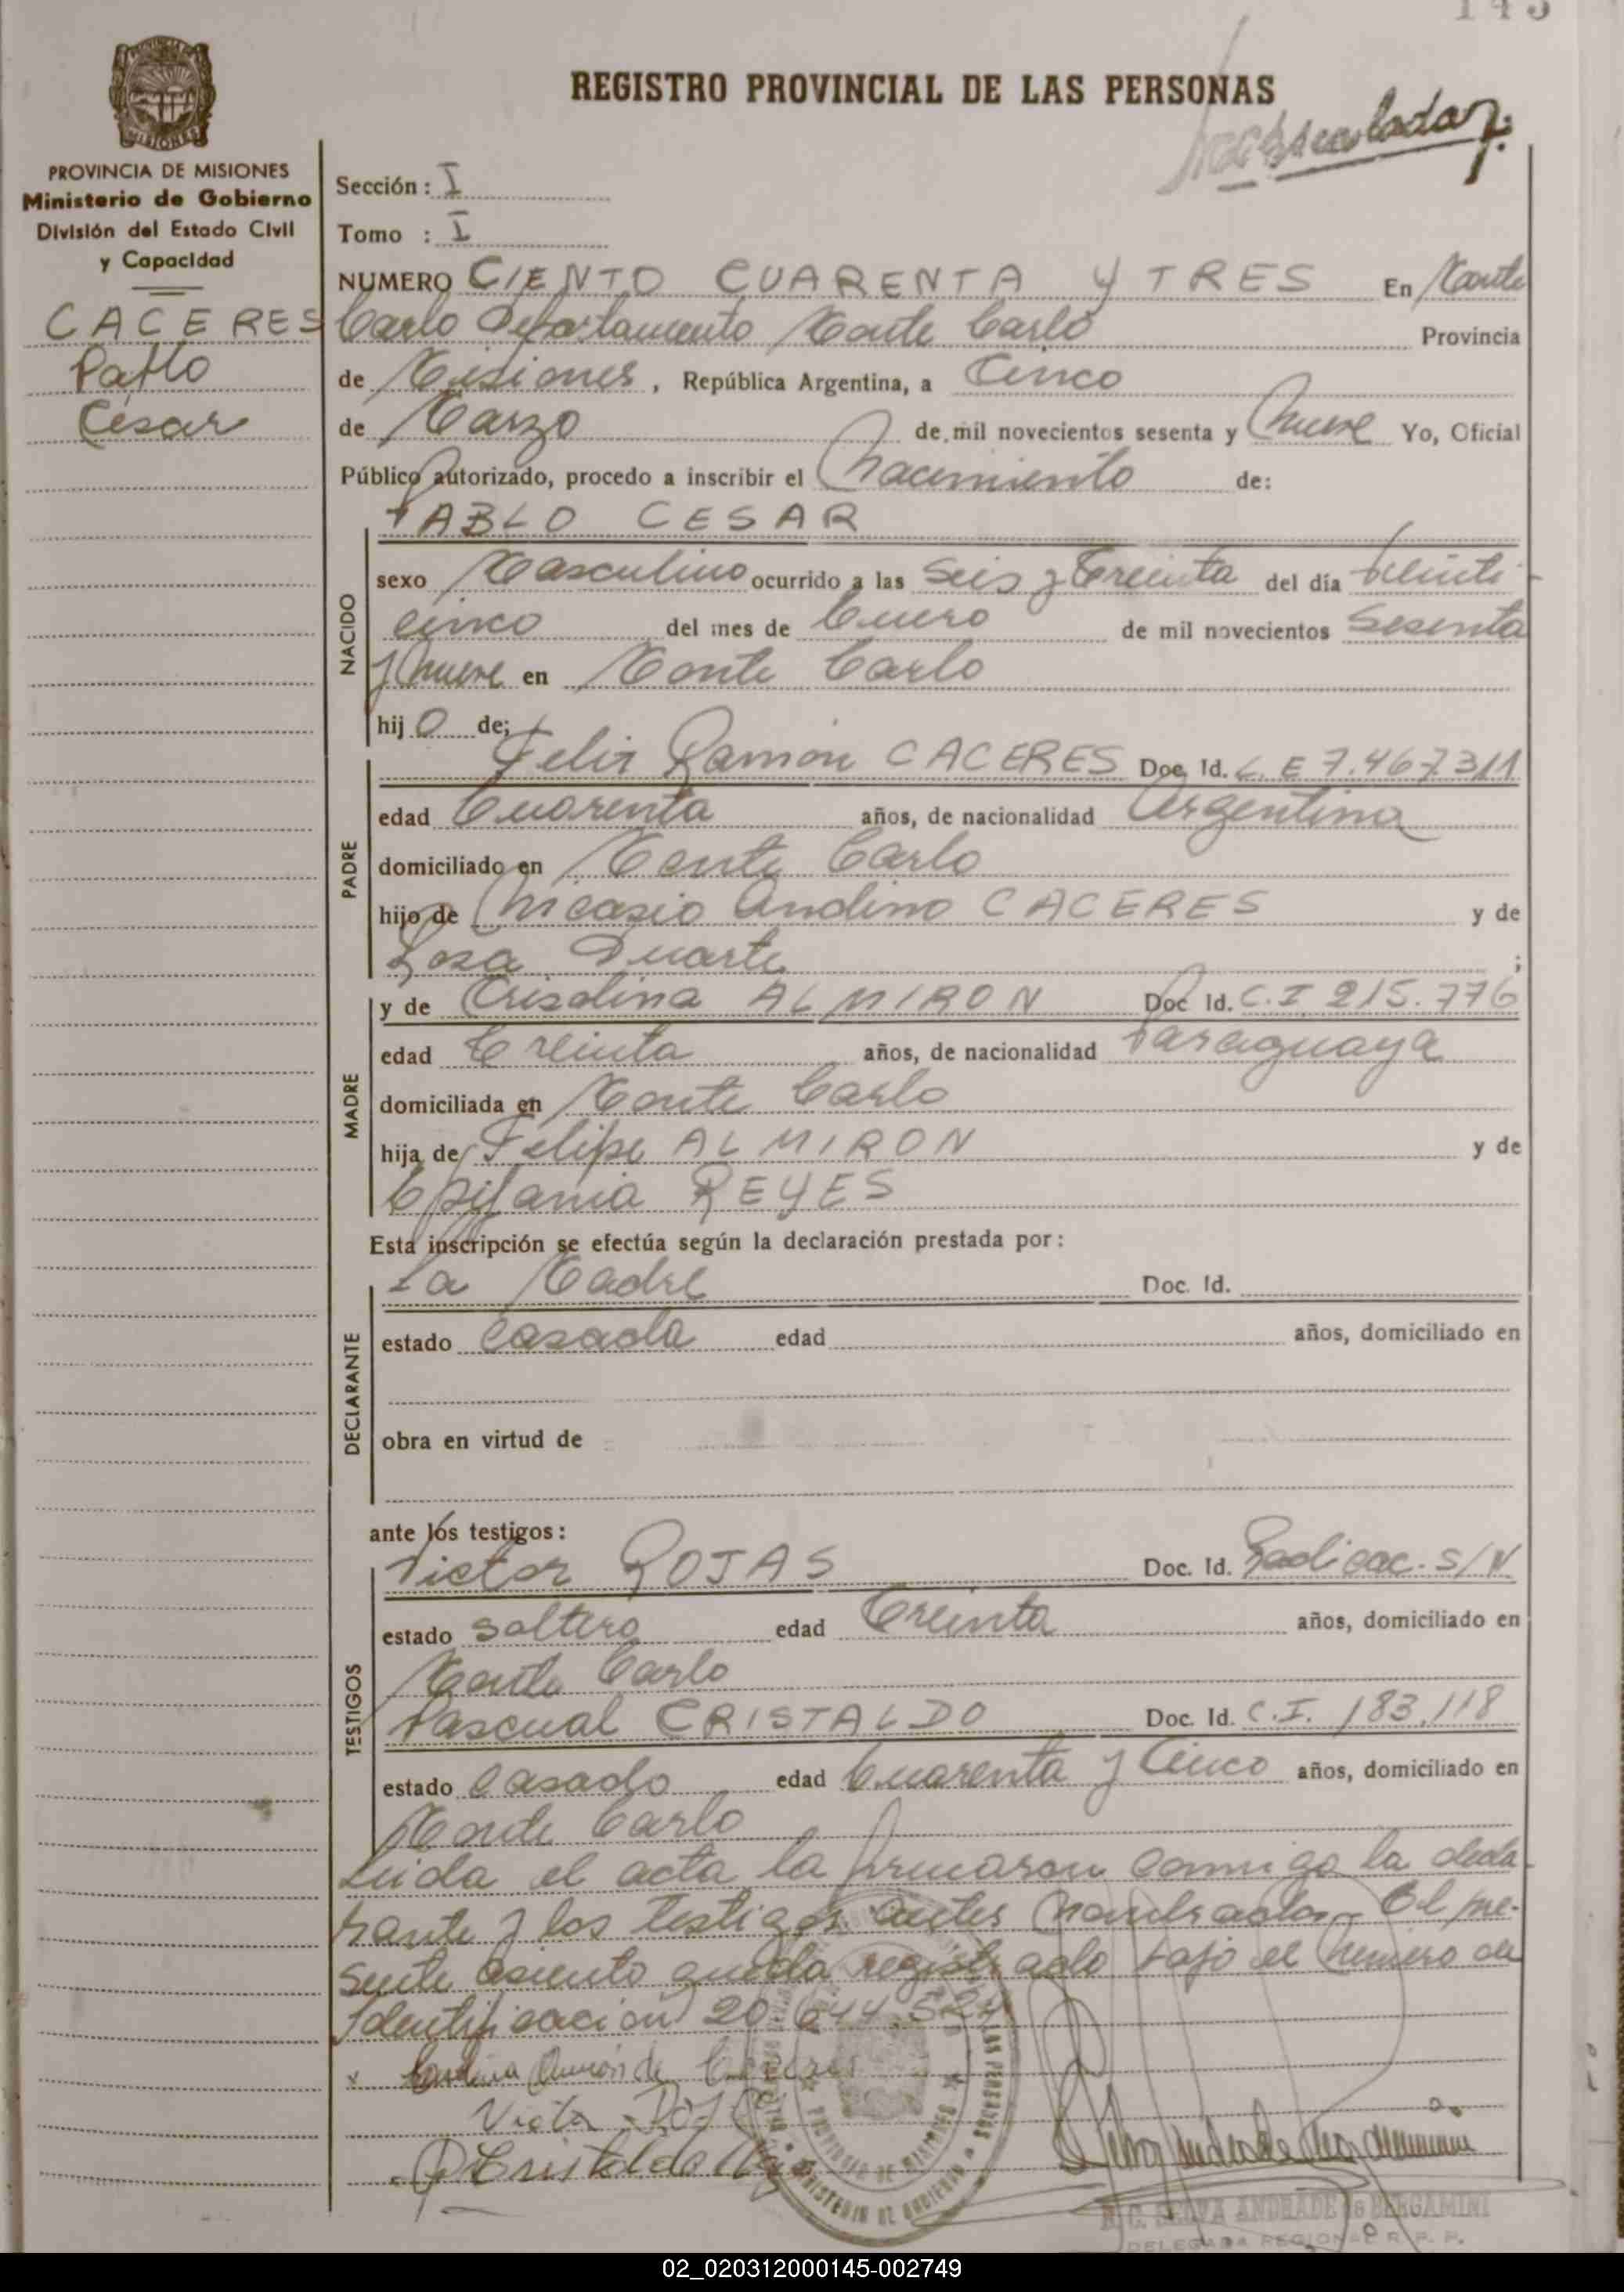 143
REGISTRO PROVINCIAL DE LAS PERSONAS
MISIONES
PROVINCIA DE MISIONES
Ministerio de Gobierno
División del Estado Civil
y Capacidad
CACERES
Pablo
César
Sección: I
Tomo : I
NUMERO CIENTO CUARENTA Y TRES En Monte
Carlo Departamento Monte Carlo Provincia
de Misiones, República Argentina, a Cinco
de Marzo de mil novecientos sesenta y Nueve Yo, Oficial
Público autorizado, procedo a inscribir el Nacimiento de:
PABLO CESAR
NACIDO
sexo Masculino ocurrido a las Seis y Treinta del día Veinti
cinco del mes de Enero de mil novecientos Sesenta
y Nueve en Monte Carlo
hijo de;
PADRE
Felix Ramón CACERES Doc. Id. L. E 7.467.311
edad Cuarenta años, de nacionalidad Argentina
domiciliado en Monte Carlo
hijo de Nicasio Andino CACERES y de
Rosa Duarte ;
MADRE
y de Crisolina ALMIRON Doc Id. C.I 215.776
edad Treinta años, de nacionalidad Paraguaya
domiciliada en Monte Carlo
hija de Felipe ALMIRON y de
Epifania REYES
Esta inscripción se efectúa según la declaración prestada por:
DECLARANTE
La Madre Doc. Id.
estado Casada edad años, domiciliado en
obra en virtud de
ante los testigos:
TESTIGOS
Victor ROJAS Doc. Id. Radicac. S/N
estado soltero edad Treinta años, domiciliado en
Monte Carlo
Pascual CRISTALDO Doc. Id. C.I. 183.118
estado Casado edad Cuarenta y Cinco años, domiciliado en
Monte Carlo
Leida el acta la firmaron conmigo la decla
rante y los testigos antes Nombrados - El pre-
sente asiento queda registrado bajo el Numero de
Identificación 20.644.524
x Almirón de Caceres
Victor Rojas
P Cristaldo
PROVINCIA DE MISIONES
MINISTERIO DE GOBIERNO
SELVA ANDRADE de BERGAMINI
DELEGADA REGIONAL R. P. P.
02_020312000145-002749